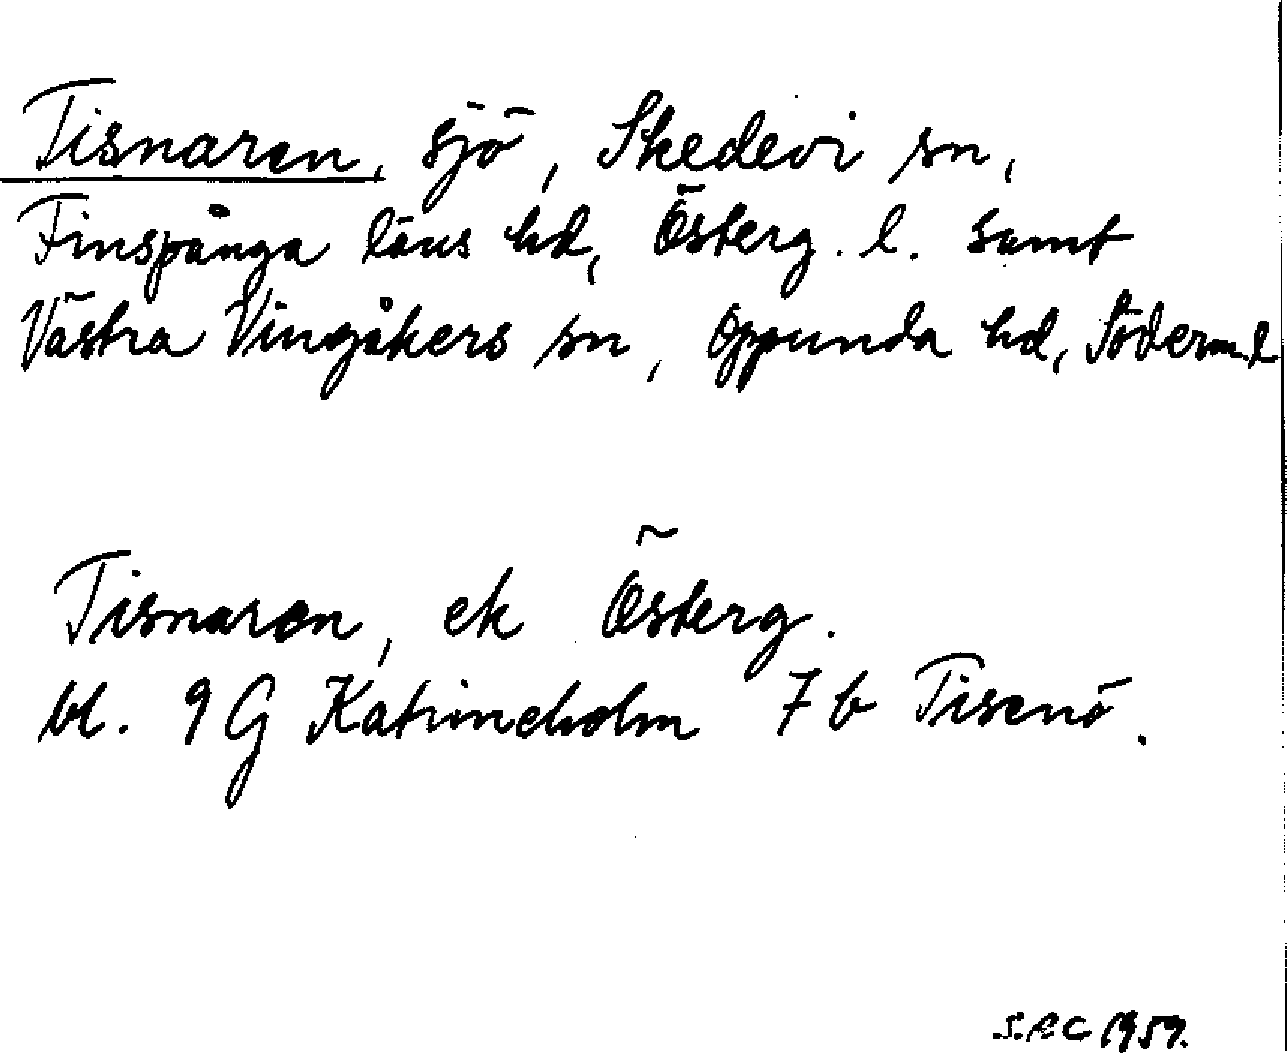 Tisnaren, sjö, Skedevi sn,
Finspånga läns hd, Österg. l. samt
Västra Vingåkers sn, Oppunda hd, Söderm. l
Tisnaren, ek Österg.
bl. 9G Katrineholm 7b Tisenö.
1959.